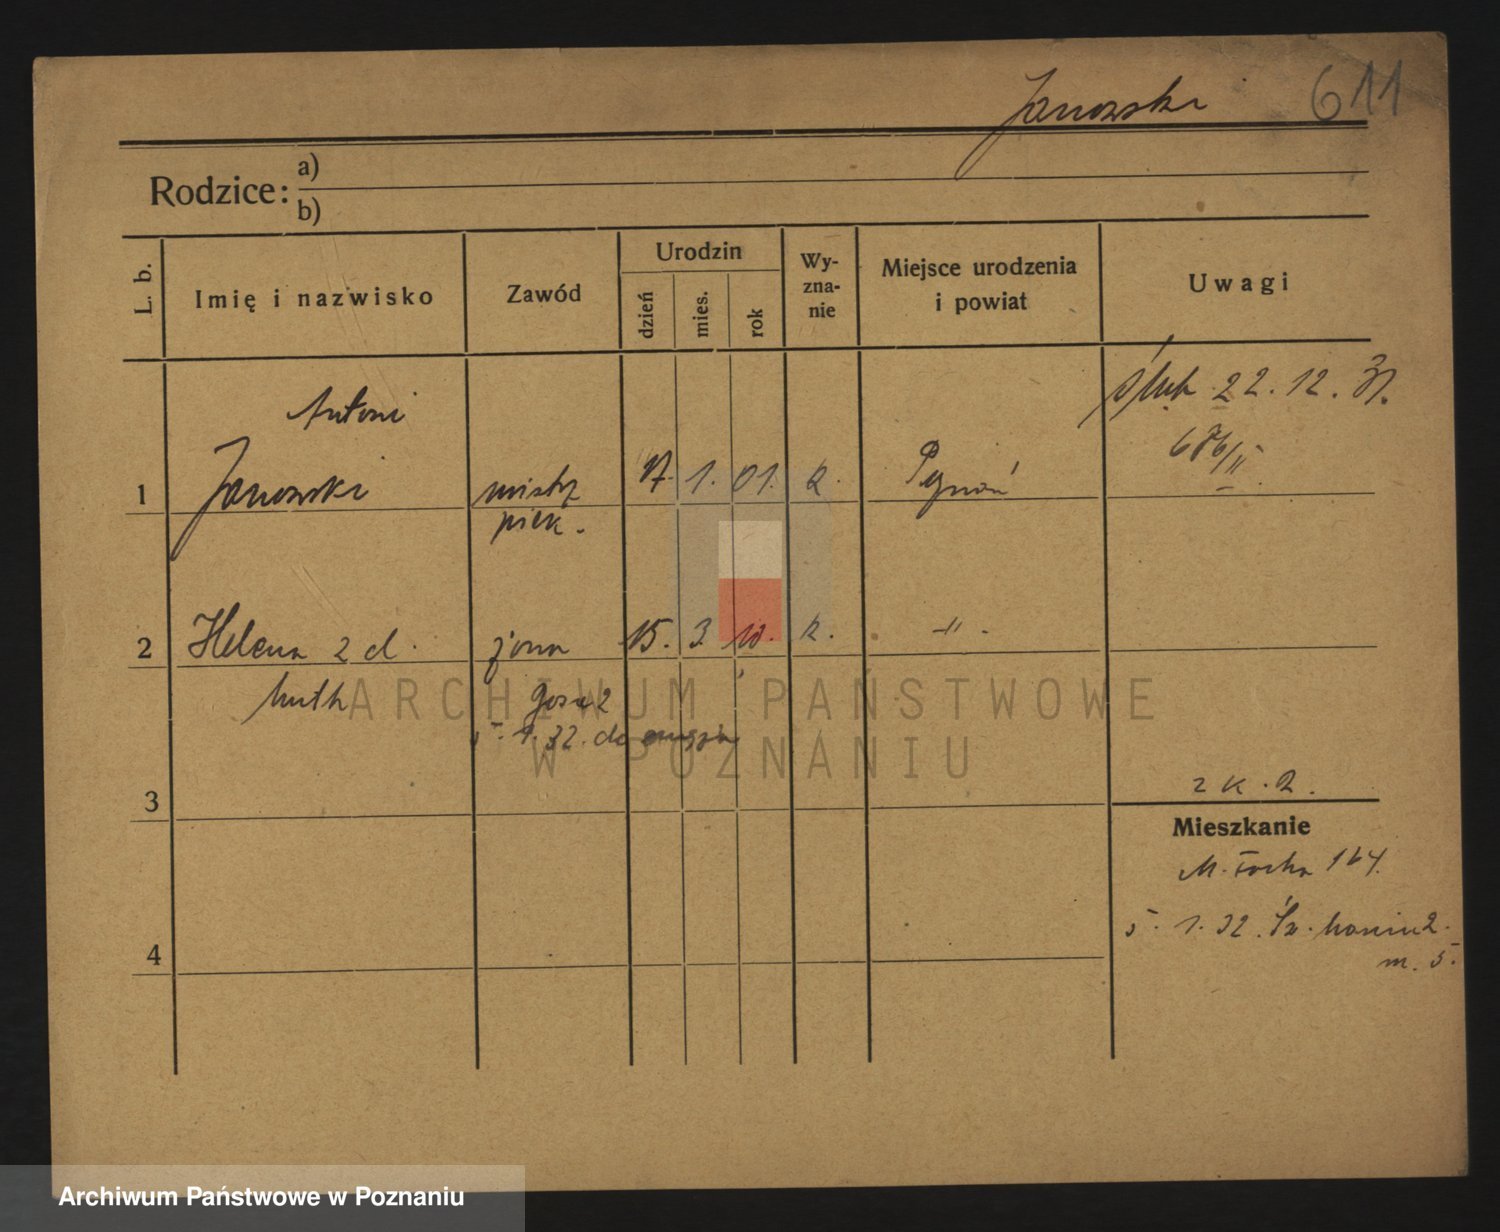 Janowski 611
Rodzice:
a)
b)
L. b.
Imię i nazwisko
Zawód
Urodzin
dzień
mies.
rok
Wy-
zna-
nie
Miejsce urodzenia
i powiat
Uwagi
ślub 22. 12. 31.
Antoni
1 Janowski mistrz 17. 1. 01. k.
piek.
2 Helena z d. żona 15. 3. 10. k. -"-
5. 1. 32. do
ARCHIWUM PAŃSTWOWE
W POZNANIU
3
z k. 2.
Mieszkanie
M. Focha 164.
5. 1. 32. Św. Marcin 2.
m. 5.
4
Archiwum Państwowe w Poznaniu